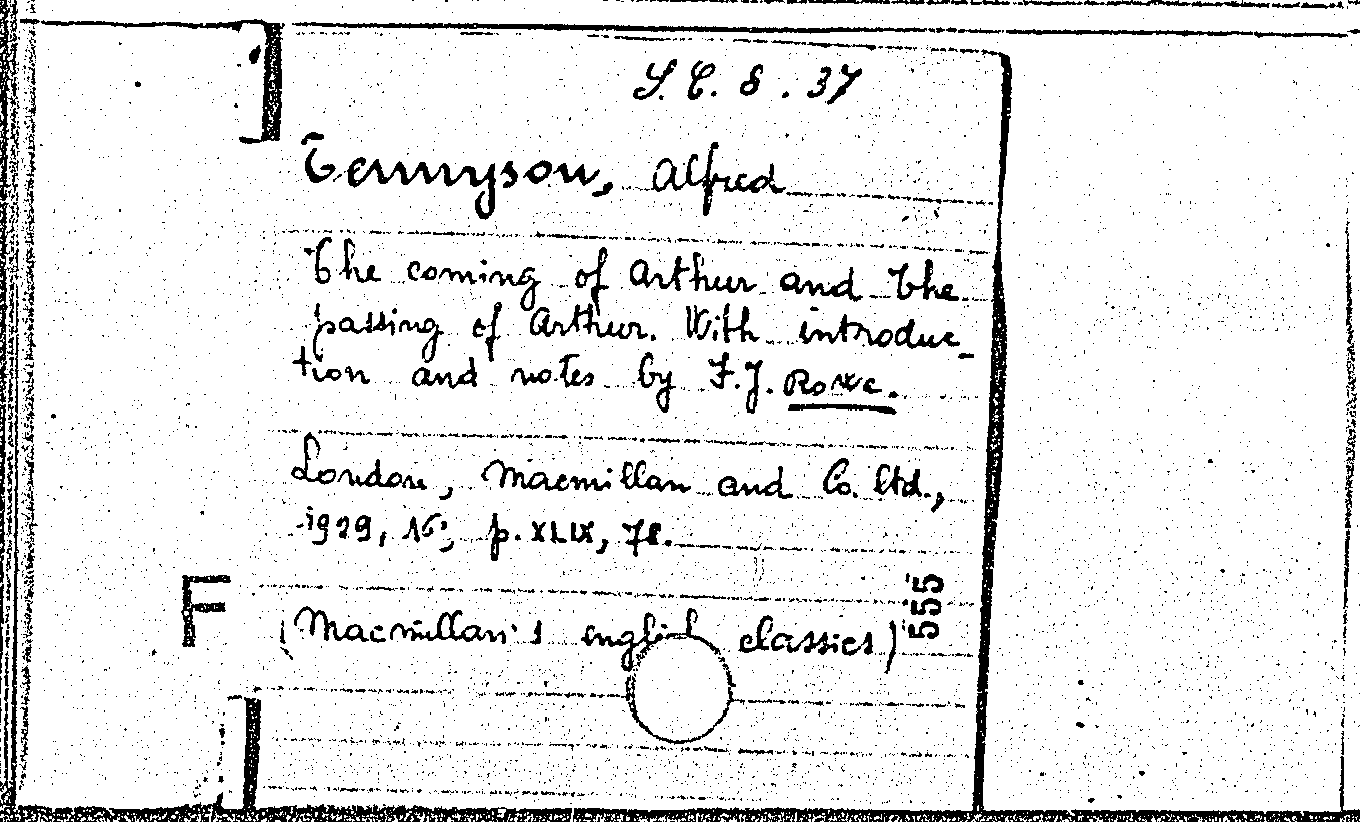 S. C. 8. 37
Tennyson, Alfred
The coming of Arthur and The
passing of Arthur. With introduc-
tion and notes by F.J. Rowe.
London, Macmillan and Co. ltd.,
1929, 16°, p. XLIX, 78.
F
555
(Macmillan's english classics)